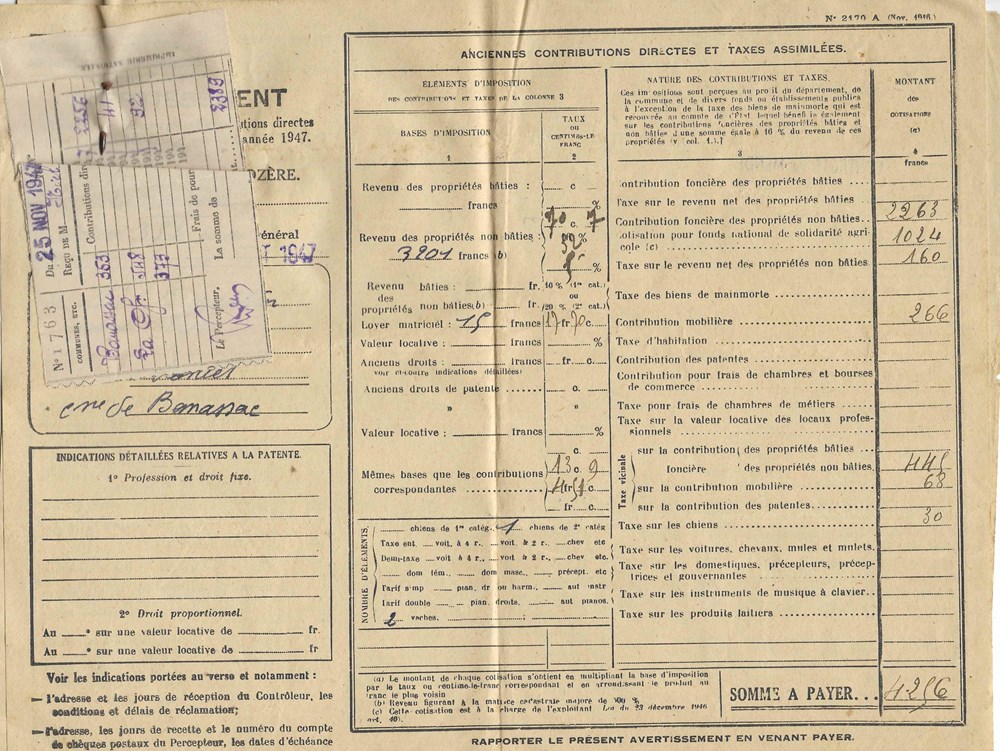 N° 2170 A (Nov. 1946)
IMPRIMERIE NATIONALE
41
32
Du 25 NOV 1947
Reçu de M
Contributions dir
Frais de pour
La somme de
Le Percepteur,
N° 1763
COMMUNES, ETC.
363
373
ENT
utions directes
année 1947.
OZÈRE.
énéral
1947
cne de Banassac
INDICATIONS DÉTAILLÉES RELATIVES A LA PATENTE.
1° Profession et droit fixe.
2° Droit proportionnel.
Au ° sur une valeur locative de fr.
Au ° sur une valeur locative de fr
Voir les indications portées au verso et notamment :
— l'adresse et les jours de réception du Contrôleur, les
conditions et délais de réclamation;
— l'adresse, les jours de recette et le numéro du compte
de chèques postaux du Percepteur, les dates d'échéance
ANCIENNES CONTRIBUTIONS DIRECTES ET TAXES ASSIMILÉES.
ÉLÉMENTS D'IMPOSITION
DES CONTRIBUTIONS ET TAXES DE LA COLONNE 3
BASES D'IMPOSITION
1
TAUX
ou
CENTIMES-LE
FRANC
2
Revenu des propriétés bâties : c
francs %
70 c. 7
Revenu des propriétés non bâties : 32 %
3201 francs (b)
%
Revenu bâties : fr. 10 % (1re cat.)
des ou
propriétés non bâties(b) fr. 20 % (2e cat.)
Loyer matriciel : 15 francs 17 fr. 70 c.
Valeur locative : francs %
Anciens droits : francs fr. c.
voir ci-contre indications détaillées)
Anciens droits de patente c.
» » c.
Valeur locative : francs %
Mêmes bases que les contributions 13 c. 9
correspondantes 4 fr 51 c.
fr c.
NOMBRE D'ÉLÉMENTS
chiens de 1re catég. 1 chiens de 2e catég
Taxe ent. voit. à 4 r., voit. à 2 r., chev etc
Demi-taxe voit à 4 r., voit à 2 r., chev. etc.
dom fém., dom masc., précept. etc
Tarif simp pian. dr ou harm., aut instr
Tarif double pian. droits, aut pianos.
2 vaches.
NATURE DES CONTRIBUTIONS ET TAXES.
Ces impositions sont perçues au profit du département, de
la commune et de divers fonds ou établissements publics
à l'exception de la taxe des biens de mainmorte qui est
recouvrée au compte de l'Etat, lequel bénéficie également
sur les contributions foncières des propriétés bâties et
non bâties d'une somme égale à 16 % du revenu de ces
propriétés (v col. 1.).
3
MONTANT
des
COTISATIONS
(a)
4
francs
Contribution foncière des propriétés bâties
Taxe sur le revenu net des propriétés bâties
Contribution foncière des propriétés non bâties 2263
Cotisation pour fonds national de solidarité agri-
cole (c) 1024
Taxe sur le revenu net des propriétés non bâties 160
Taxe des biens de mainmorte
Contribution mobilière 266
Taxe d'habitation
Contribution des patentes
Contribution pour frais de chambres et bourses
de commerce
Taxe pour frais de chambres de métiers
Taxe sur la valeur locative des locaux profes-
sionnels
Taxe vicinale
sur la contribution des propriétés bâties
foncière des propriétés non bâties. 445
sur la contribution mobilière 68
sur la contribution des patentes
Taxe sur les chiens 30
Taxe sur les voitures, chevaux, mules et mulets.
Taxe sur les domestiques, précepteurs, précep-
trices et gouvernantes
Taxe sur les instruments de musique à clavier
Taxe sur les produits laitiers
(a) Le montant de chaque cotisation s'obtient en multipliant la base d'imposition
par le taux ou centime-le-franc correspondant et en arrondissant le produit au
franc le plus voisin
(b) Revenu figurant à la matrice cadastrale majoré de 100 %
(c) Cette cotisation est à la charge de l'exploitant Loi du 23 décembre 1946
art. 10).
SOMME A PAYER... 4256
RAPPORTER LE PRÉSENT AVERTISSEMENT EN VENANT PAYER.